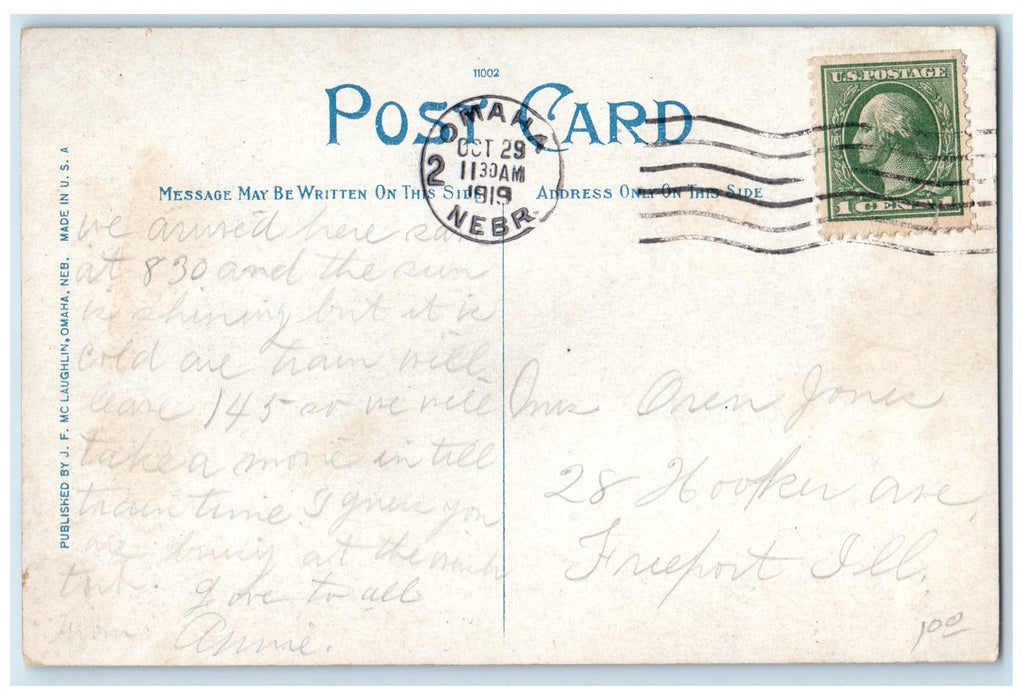 11002
POST CARD
OMAHA
OCT 29
11 30 AM
1919
NEBR.
2
U.S. POSTAGE
1 CENT 1
MESSAGE MAY BE WRITTEN ON THIS SIDE
ADDRESS ONLY ON THIS SIDE
PUBLISHED BY J. F. MC LAUGHLIN, OMAHA, NEB. MADE IN U. S. A
we arrived here
at 8 30 and the sun
is shining but it is
cold our train will
leave 145 so we will
take a movie in till
train time. I guess you
are busy at the
Love to all
from Annie.
Mrs Oren Jones
28 Hooker ave,
Freeport Ill.
100